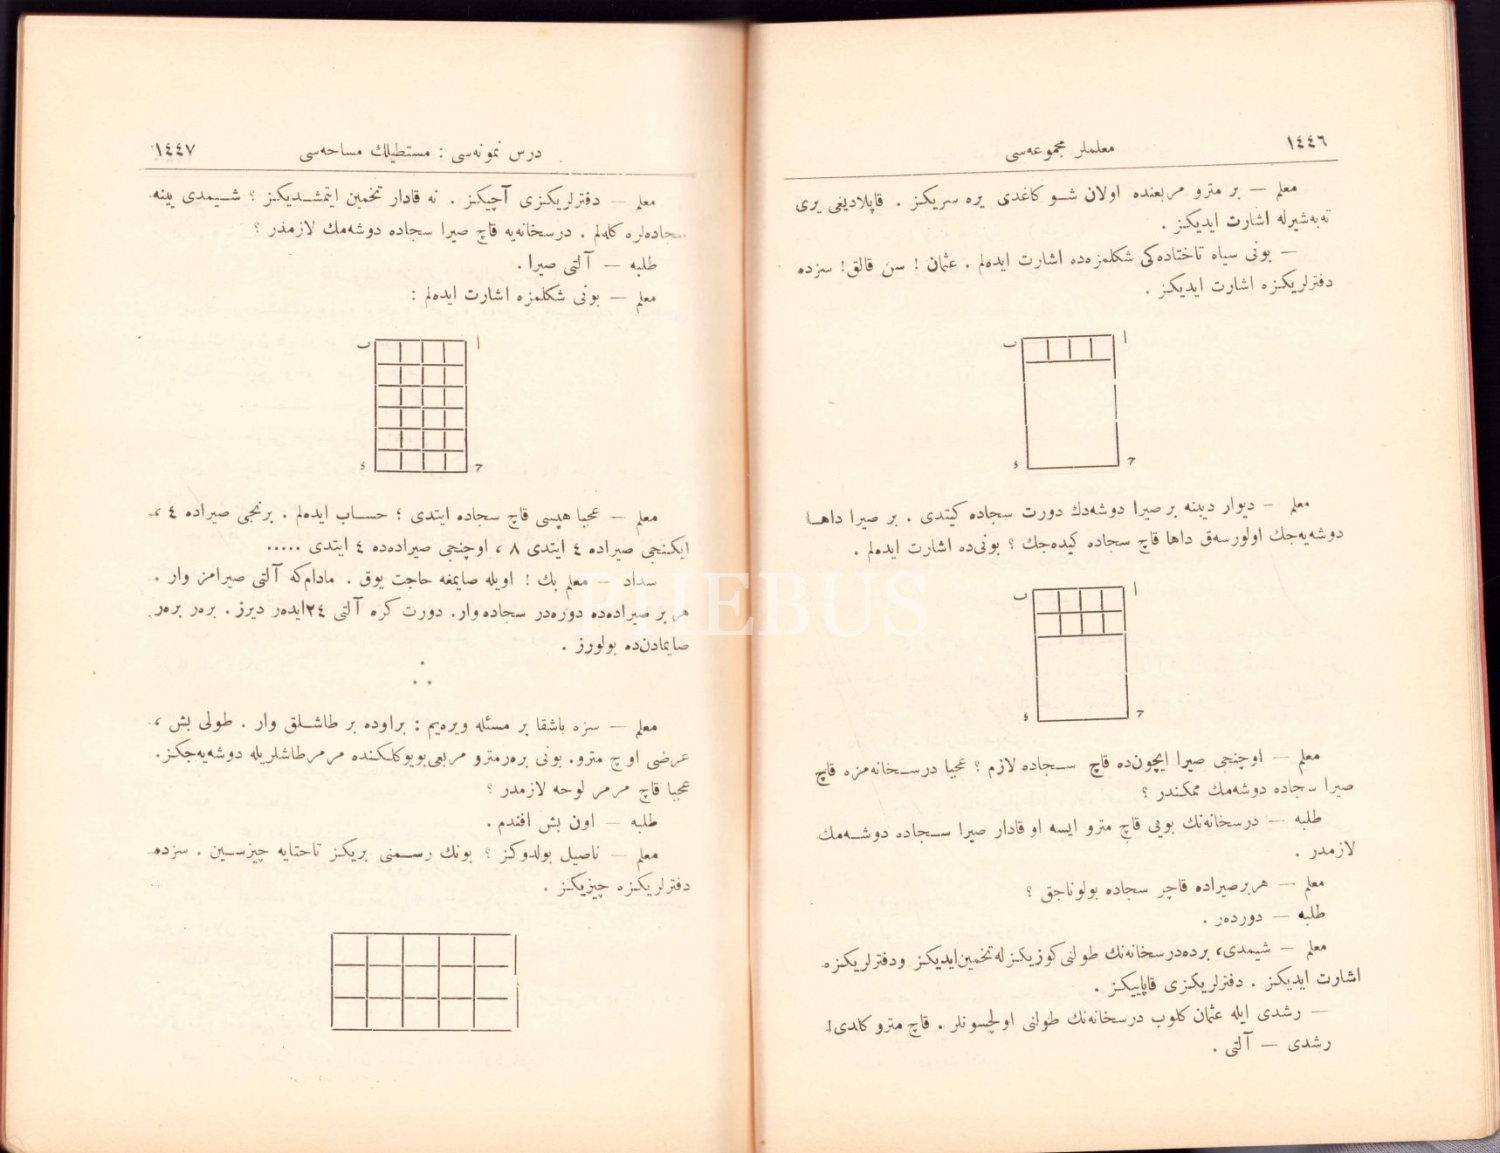 ١٤٤٦
معلملر مجموعه‌سی
معلم — بر مترو مربعنده اولان شو کاغدی یره سریکز . قاپلادیغی یری
تبه‌شیرله اشارت ایدیکز .
— بونی سیاه تاختاده‌کی شکلمزه‌ده اشارت ایده‌لم . عثمان ! سن قالق! سزده
دفترلریکزه اشارت ایدیکز .
ا
ب
ح
د
معلم — دیوار دیبنه بر صیرا دوشه‌دك دورت سجاده کیتدی . بر صیرا داها
دوشه‌یه‌جك اولورسه‌ق داها قاچ سجاده کیده‌جك ؟ بونی‌ده اشارت ایده‌لم .
ا
ب
ح
د
معلم — اوچنجی صیرا ایچون‌ده قاچ سجاده لازم ؟ عجبا درسخانه‌مزه قاچ
صیرا سجاده دوشه‌مك ممکندر ؟
طلبه — درسخانه‌نك بویی قاچ مترو ایسه او قادار صیرا سجاده دوشه‌مك
لازمدر .
معلم — هربرصیراده قاچر سجاده بولوناجق ؟
طلبه — دوردر .
معلم — شیمدی، برده‌درسخانه‌نك طولنی کوزیکزله تخمین‌ایدیکز ودفترلریکزه
اشارت ایدیکز . دفترلریکزی قاپاییکز .
— رشدی ایله عثمان کلوب درسخانه‌نك طولنی اولچسونلر . قاچ مترو کلدی!
رشدی — آلتی .
درس نمونه‌سی : مستطیلك مساحه‌سی
١٤٤٧
معلم — دفترلریکزی آچیکز . نه قادار تخمین ایتمشدیکز ؟ شیمدی یینه
سجاده‌لره کله‌لم . درسخانه‌یه قاچ صیرا سجاده دوشه‌مك لازمدر ؟
طلبه — آلتی صیرا .
معلم — بونی شکلمزه اشارت ایده‌لم :
ا
ب
ح
د
معلم — عجبا هپسی قاچ سجاده ایتدی ؟ حساب ایده‌لم . برنجی صیراده ٤ ،
ایکنجی صیراده ٤ ایتدی ٨ ، اوچنجی صیراده‌ده ٤ ایتدی .....
سداد — معلم بك ! اویله صایمغه حاجت یوق . مادام‌که آلتی صیرامز وار .
هر بر صیراده‌ده دوره‌در سجاده وار. دورت کره آلتی ٢٤ایده‌ر دیرز . بره‌ر بره‌ر
صایمادن‌ده بولورز .
معلم — سزه باشقا بر مسئله ویره‌یم : براوده بر طاشلق وار . طولی بش ،
عرضی اوچ مترو. بونی بره‌رمترو مربعی‌بویوکلکنده مرمرطاشلریله دوشه‌یه‌جکز.
عجبا قاچ مرمر لوحه لازمدر ؟
طلبه — اون بش افندم .
معلم — ناصیل بولدوکز ؟ بونك رسمنی بریکز تاحتایه چیزسین . سزده
دفترلریکزه چیزیکز .
PHEBUS